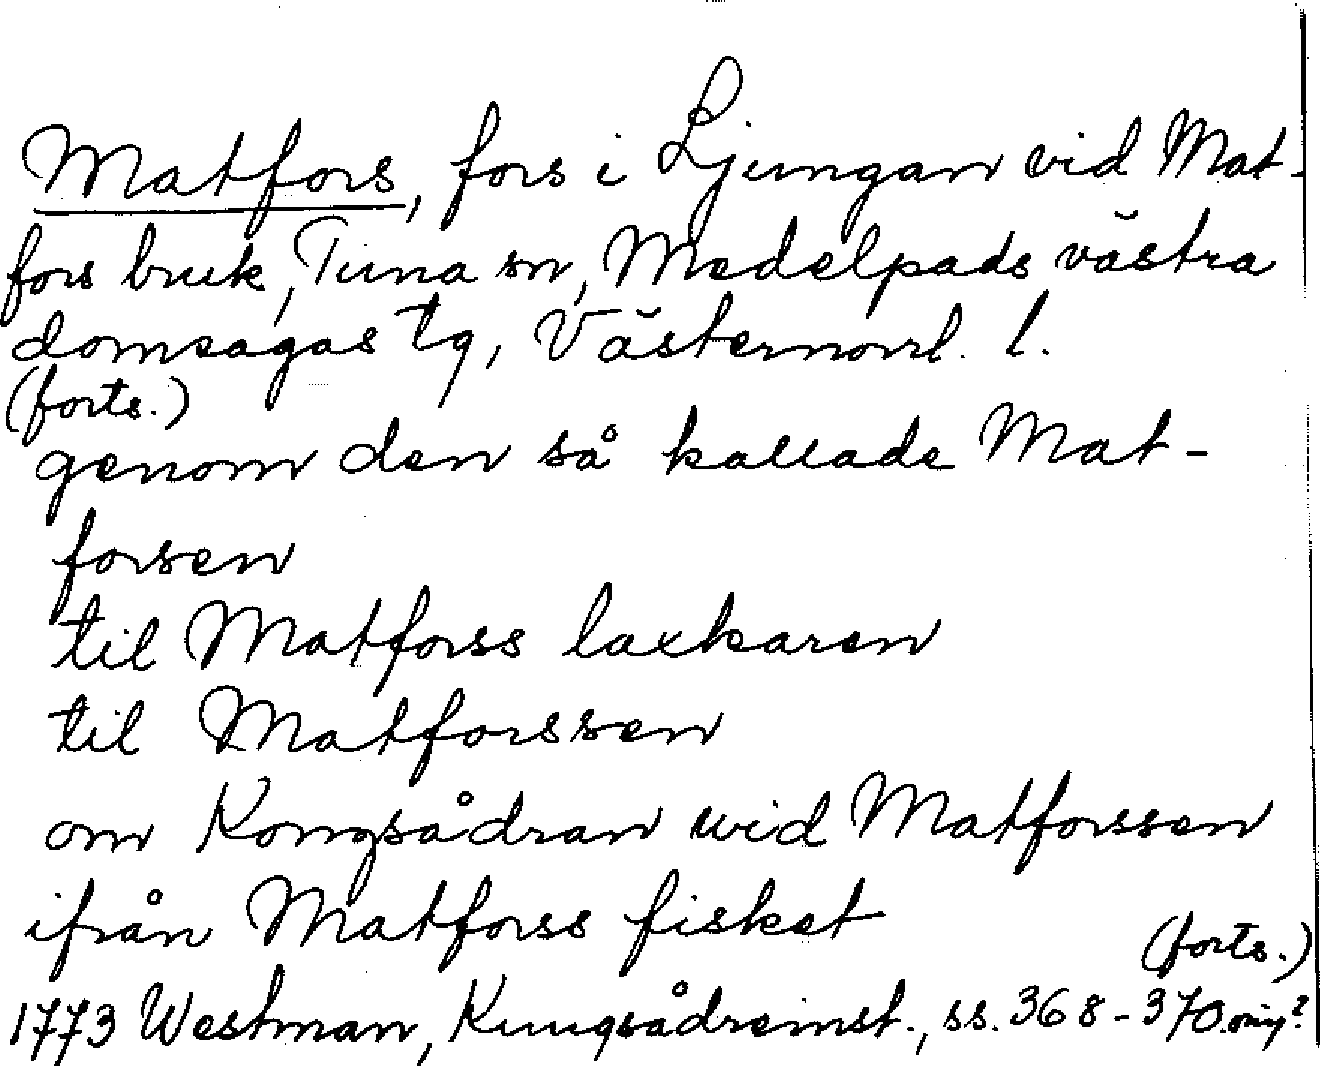 Matfors, fors i Ljungan vid Mat-
fors bruk, Tuna sn, Medelpads västra
domsagas tg, Västernorrl. l.
(forts.)
genom den så kallade Mat-
forsen
til Matforss laxkaren
til Matforssen
om Kongsådran wid Matforssen
ifrån Matforss fisket
(forts.)
1773 Westman, Kungsådreinst., ss. 368-370.